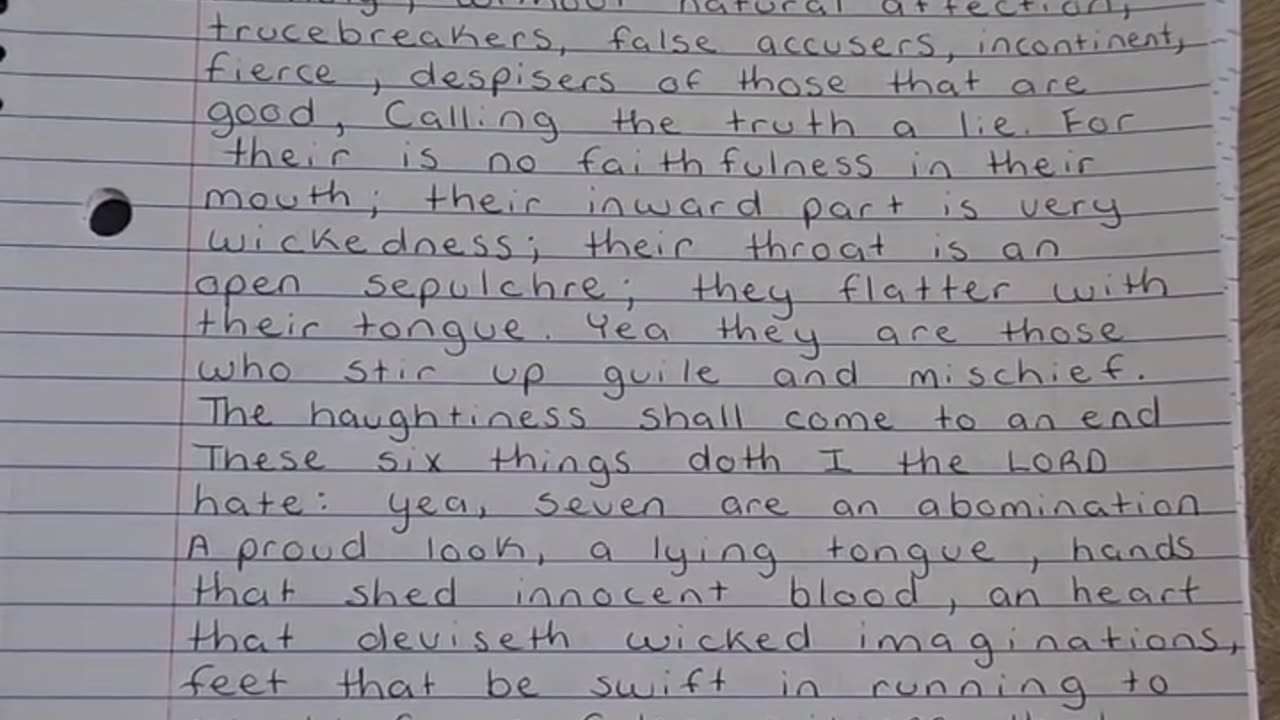 natural affection,
trucebreakers, false accusers, incontinent,
fierce, despisers of those that are
good, Calling the truth a lie. For
their is no faithfulness in their
mouth; their inward part is very
wickedness; their throat is an
open sepulchre; they flatter with
their tongue. Yea they are those
who stir up guile and mischief.
The haughtiness shall come to an end
These six things doth I the LORD
hate: yea, seven are an abomination
A proud look, a lying tongue, hands
that shed innocent blood, an heart
that deviseth wicked imaginations,
feet that be swift in running to